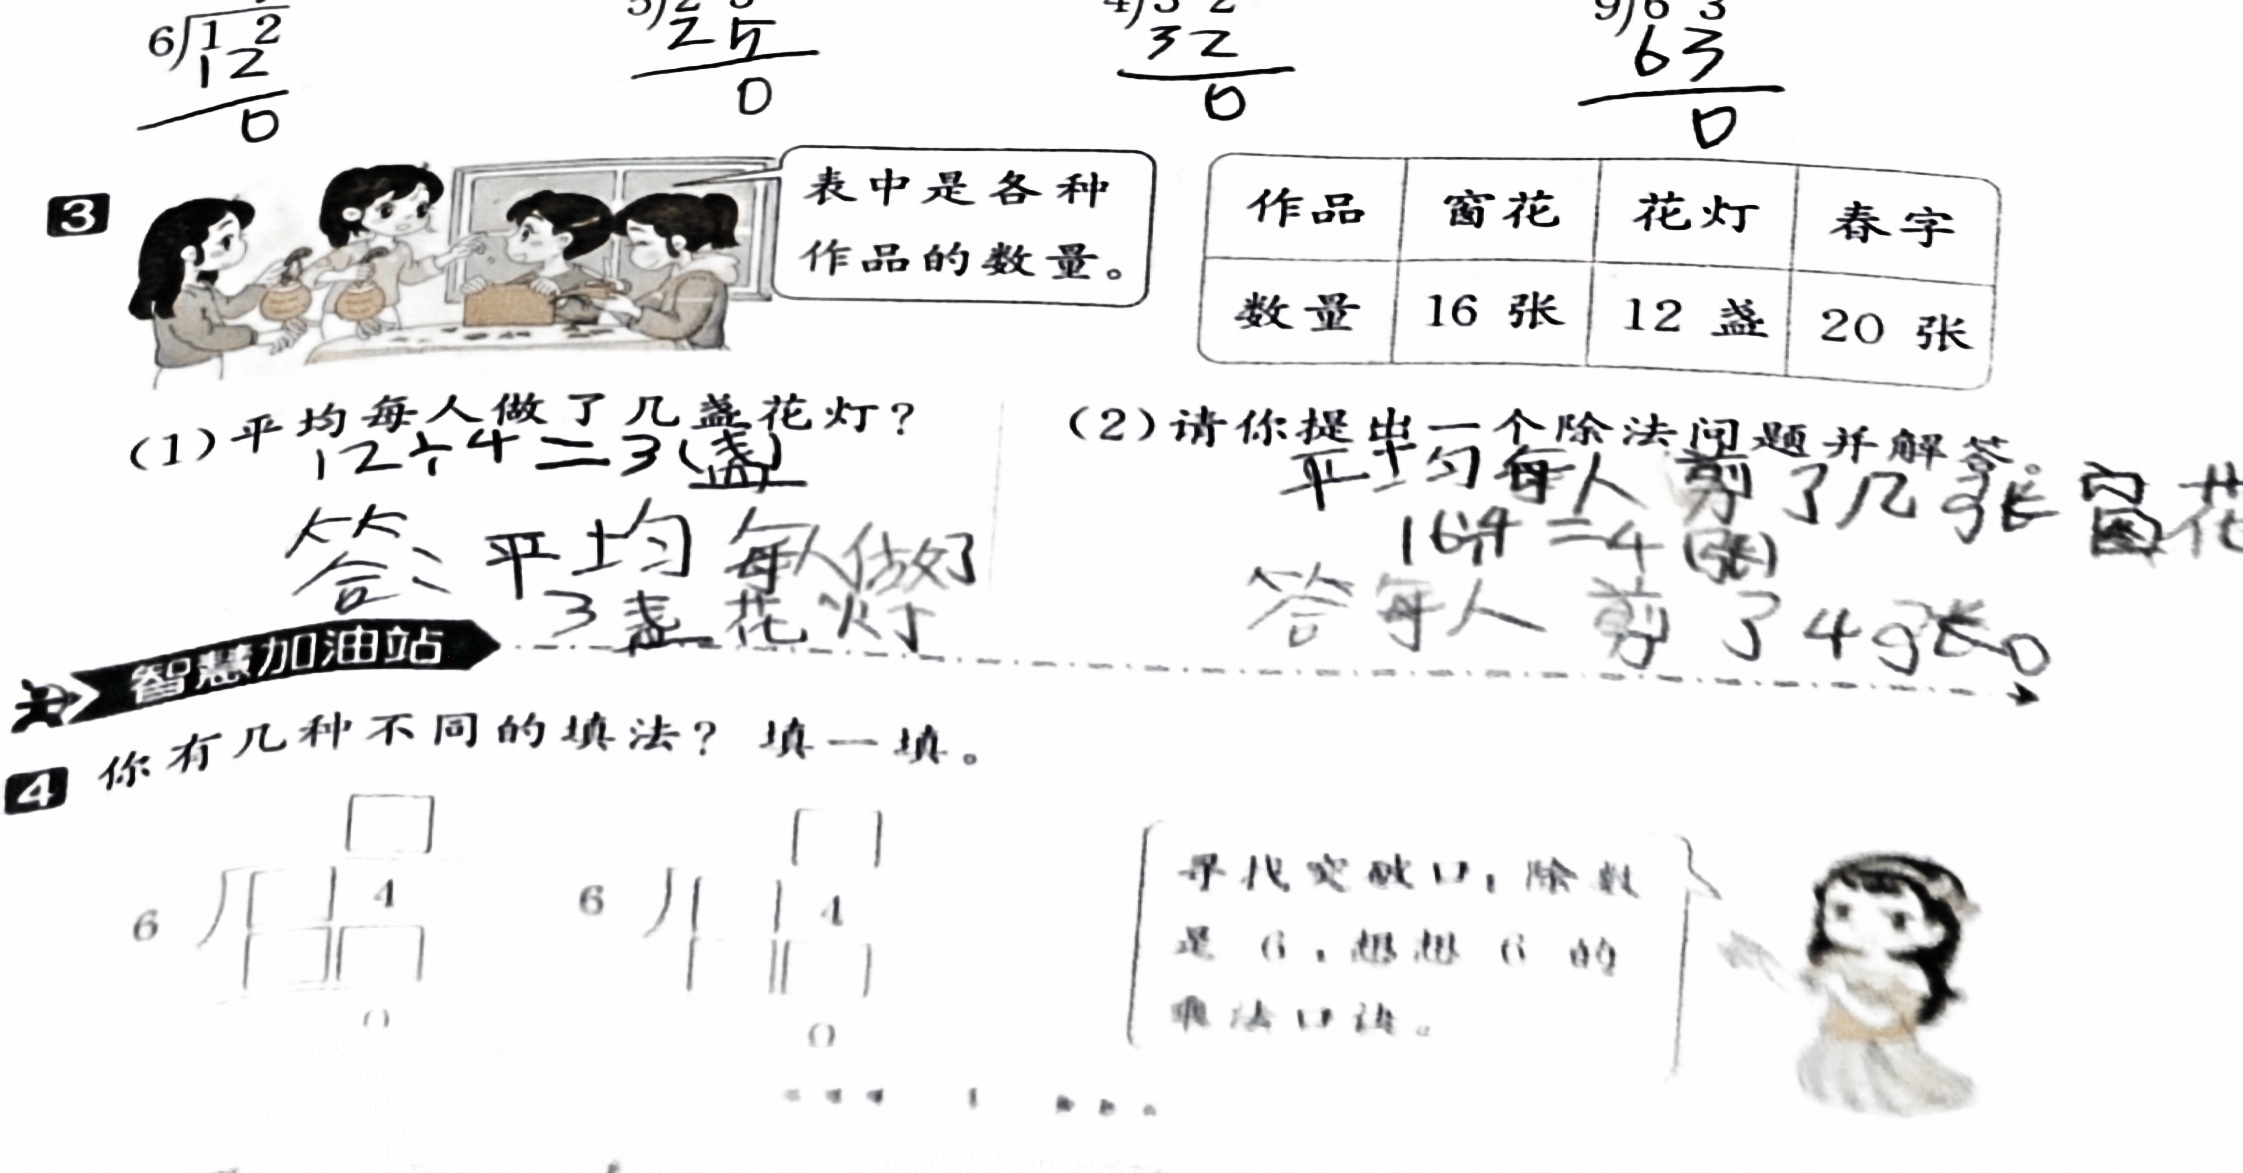 6 1 2
1 2
0
2 5
0
3 2
0
9 6 3
6 3
0
3
表中是各种
作品的数量。
作品 窗花 花灯 春字
数量 16 张 12 盏 20 张
(1)平均每人做了几盏花灯?
12÷4=3(盏)
答: 平均每人做好
3盏花灯
(2)请你提出一个除法问题并解答。
平均每人剪了几张窗花
16÷4=4(张)
答每人剪了4张。
智慧加油站
4 你有几种不同的填法? 填一填。
6 4
0
6 4
0
寻找突破口:除数
是 6,想想 6 的
乘法口诀。